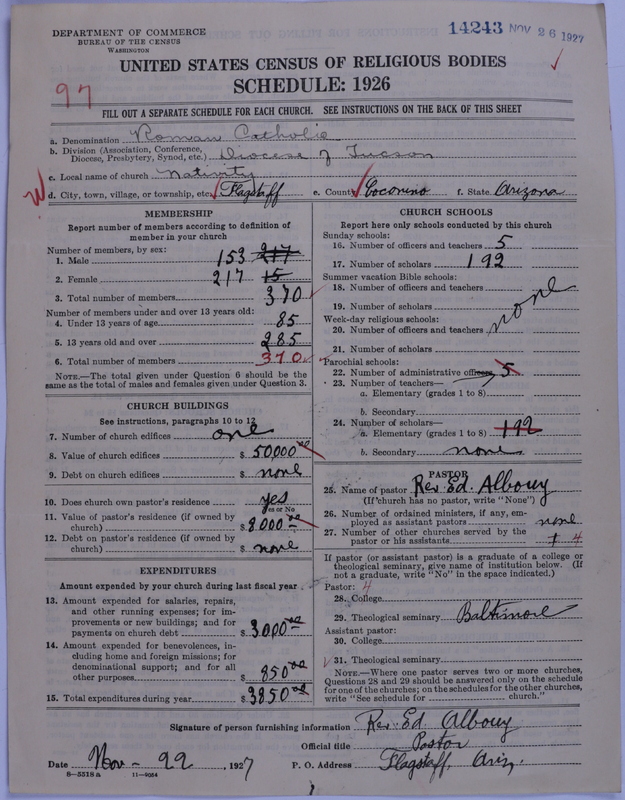 DEPARTMENT OF COMMERCE
BUREAU OF THE CENSUS
WASHINGTON
14243 NOV 26 1927
UNITED STATES CENSUS OF RELIGIOUS BODIES
SCHEDULE: 1926
97
FILL OUT A SEPARATE SCHEDULE FOR EACH CHURCH. SEE INSTRUCTIONS ON THE BACK OF THIS SHEET
a. Denomination Roman Catholic
b. Division (Association, Conference, Diocese, Presbytery, Synod, etc.) Diocese of Tucson
c. Local name of church Nativity
W d. City, town, village, or township, etc. Flagstaff e. County Coconino f. State Arizona
MEMBERSHIP
Report number of members according to definition of
member in your church
Number of members, by sex:
1. Male 153 217
2. Female 217 15
3. Total number of members 370
Number of members under and over 13 years old:
4. Under 13 years of age 85
5. 13 years old and over 285
6. Total number of members 370
NOTE.—The total given under Question 6 should be
same as the total of males and females given under Question 3.
CHURCH BUILDINGS
See instructions, paragraphs 10 to 12
7. Number of church edifices one
8. Value of church edifices $ 50,000 00
9. Debt on church edifices $ none
10. Does church own pastor's residence yes
Yes or No
11. Value of pastor's residence (if owned by
church) $ 8000 00
12. Debt on pastor's residence (if owned by
church) $ none
EXPENDITURES
Amount expended by your church during last fiscal year
13. Amount expended for salaries, repairs,
and other running expenses; for im-
provements or new buildings; and for
payments on church debt $ 3000 00
14. Amount expended for benevolences, in-
cluding home and foreign missions; for
denominational support; and for all
other purposes $ 850 00
15. Total expenditures during year $ 3850 00
CHURCH SCHOOLS
Report here only schools conducted by this church
Sunday schools:
16. Number of officers and teachers 5
17. Number of scholars 192
Summer vacation Bible schools:
18. Number of officers and teachers
19. Number of scholars none
Week-day religious schools:
20. Number of officers and teachers
21. Number of scholars
Parochial schools:
22. Number of administrative officers 5
23. Number of teachers—
a. Elementary (grades 1 to 8)
b. Secondary
24. Number of scholars—
a. Elementary (grades 1 to 8) 192
b. Secondary none
PASTOR
25. Name of pastor Rev. Ed. Albouy
(If church has no pastor, write "None")
26. Number of ordained ministers, if any, em-
ployed as assistant pastors none
27. Number of other churches served by the
pastor or his assistants 1 4
If pastor (or assistant pastor) is a graduate of a college or
theological seminary, give name of institution below. (If
not a graduate, write "No" in the space indicated.)
Pastor: 4
28. College
29. Theological seminary Baltimore
Assistant pastor:
30. College
31. Theological seminary
NOTE.—Where one pastor serves two or more churches,
Questions 28 and 29 should be answered only on the schedule
for one of the churches; on the schedules for the other churches,
write "See schedule for church."
Signature of person furnishing information Rev. Ed Albouy
Official title Pastor
Date Nov - 22, 1927 P. O. Address Flagstaff, Ariz.
8—5518 a 11—9054